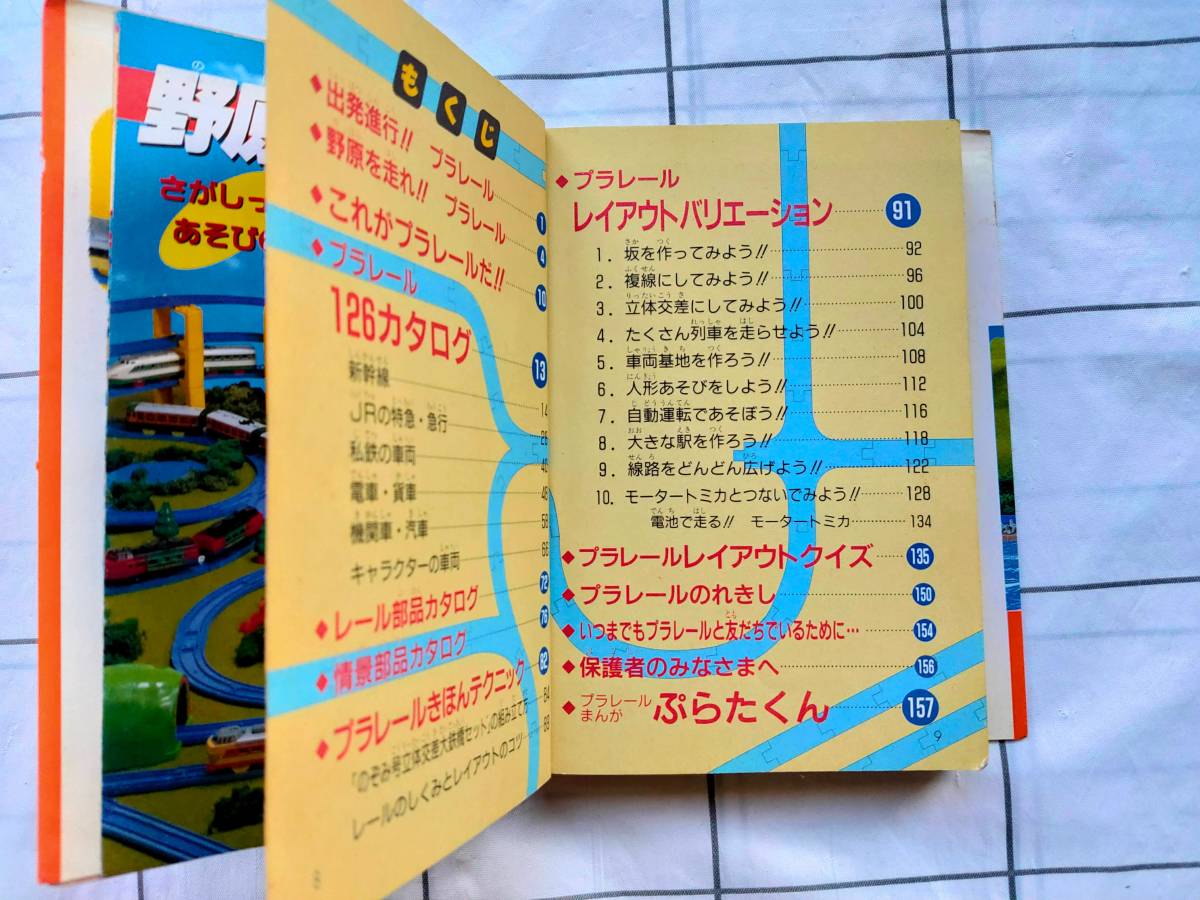 野原
さがしっ
あそび
もくじ
◆出発進行!! プラレール 1
◆野原を走れ!! プラレール 4
◆これがプラレールだ!! 10
◆プラレール
126カタログ 13
新幹線 14
JRの特急・急行 26
私鉄の車両 40
電車・貨車 48
機関車・汽車 58
キャラクターの車両 66
◆レール部品カタログ 72
◆情景部品カタログ 76
◆プラレールきほんテクニック 82
「のぞみ号立体交差大鉄橋セット」の組み立て方 84
レールのしくみとレイアウトのコツ… 88
8
◆プラレール
レイアウトバリエーション 91
1. 坂を作ってみよう!! 92
2. 複線にしてみよう!! 96
3. 立体交差にしてみよう!! 100
4. たくさん列車を走らせよう!! 104
5. 車両基地を作ろう!! 108
6. 人形あそびをしよう!! 112
7. 自動運転であそぼう!! 116
8. 大きな駅を作ろう!! 118
9. 線路をどんどん広げよう!! 122
10. モータートミカとつないでみよう!! 128
電池で走る!! モータートミカ 134
◆プラレールレイアウトクイズ 135
◆プラレールのれきし 150
◆いつまでもプラレールと友だちでいるために… 154
◆保護者のみなさまへ 156
◆プラレールまんが ぷらたくん 157
9